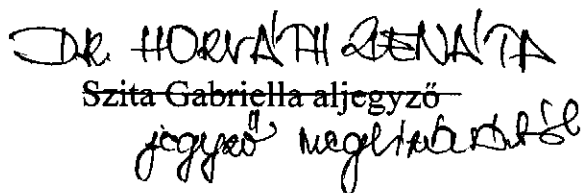 DR. HORVÁTH RENÁTA
Szita Gabriella aljegyző
jegyző megbízásából